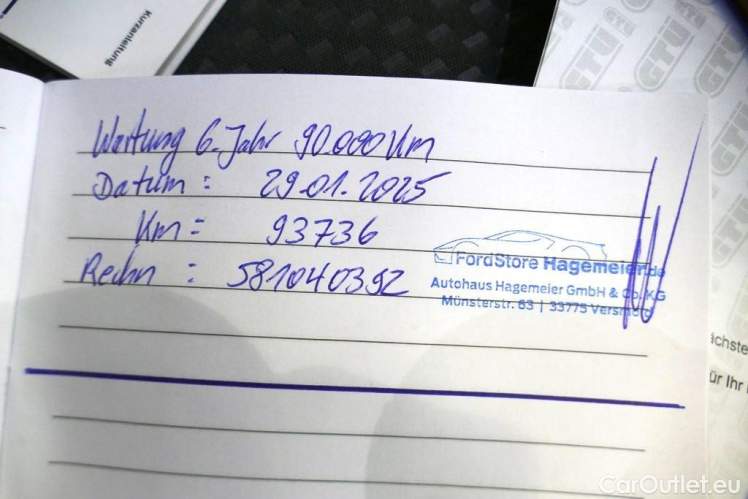 Kurzanleitung
GTÜ
GTÜ
GTÜ
GTÜ
Wartung 6. Jahr 90.000 Km
Datum : 29.01.2025
Km = 93736
Rechn : 581040392
FordStore Hagemeier.de
Autohaus Hagemeier GmbH & Co. KG
Münsterstr. 63 | 33775 Versmold
ächste
ür Ihr
CarOutlet.eu